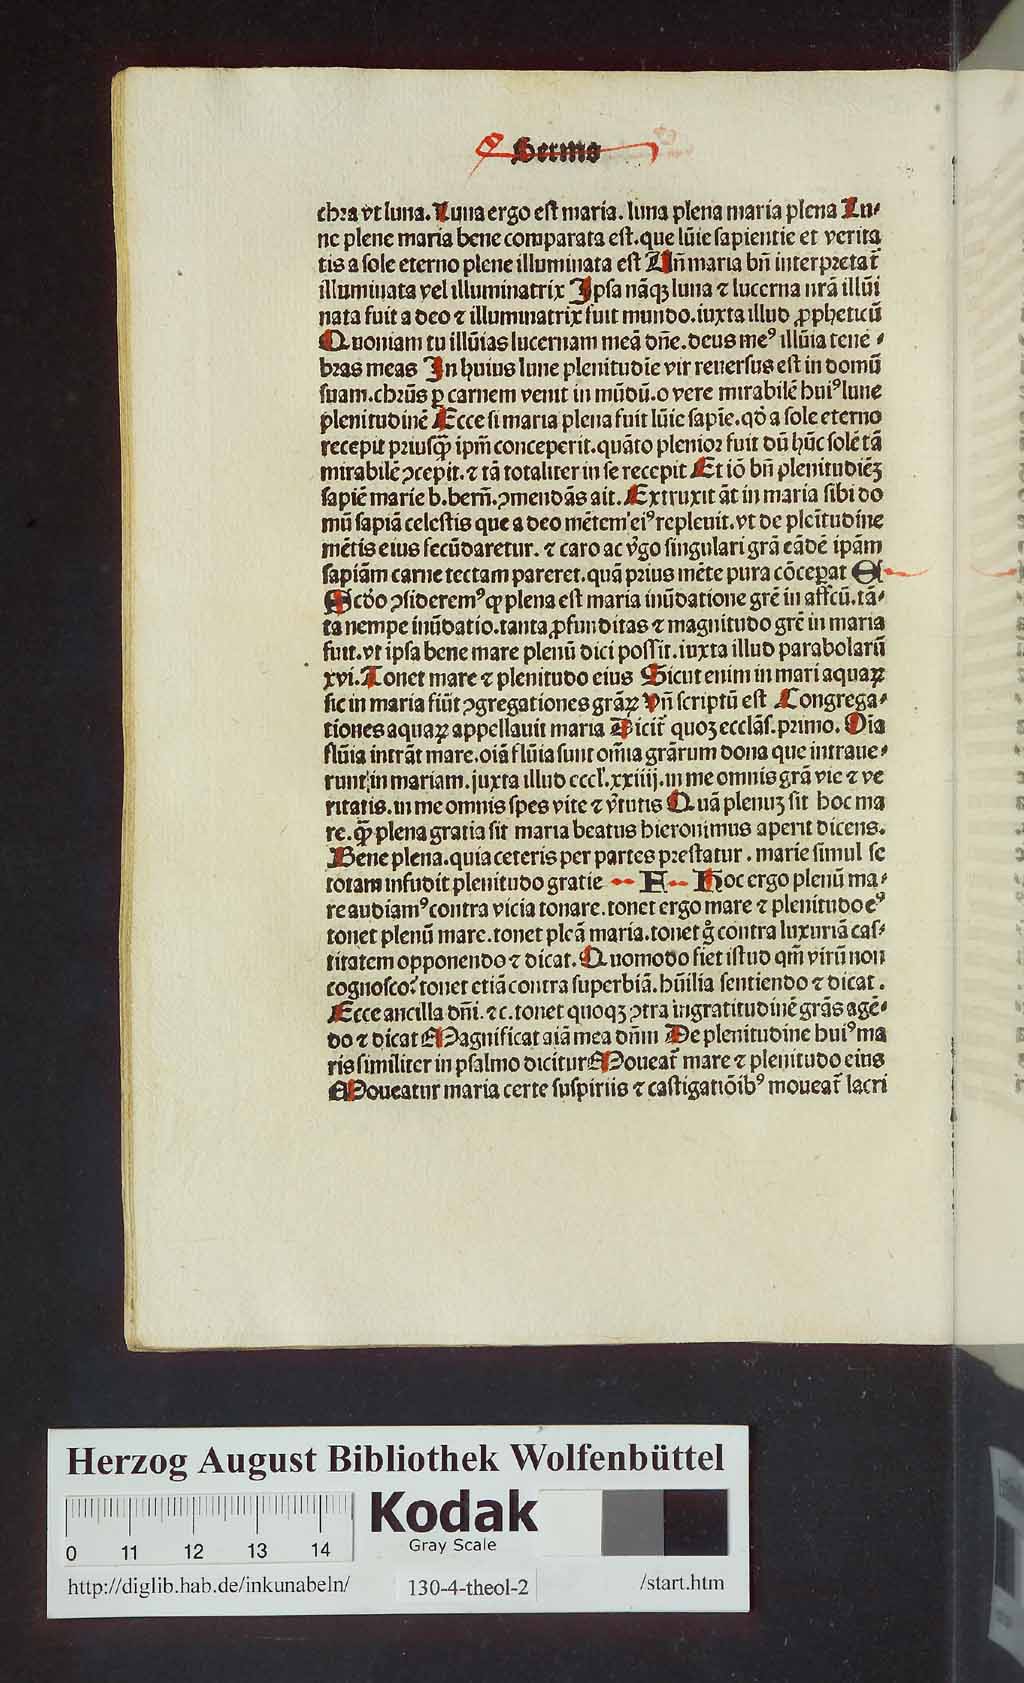 Sermo
chra vt luna. Luna ergo est maria. luna plena maria plena Lu⸗
ne plene maria bene comparata est. que lūīe sapientie et verita
tis a sole eterno plene illuminata est Un̄ maria bn̄ interpretat᷑
illuminata vel illuminatrix Ipsa nāqꝫ luna ⁊ lucerna nrā illūi
nata fuit a deo ⁊ illuminatrix fuit mundo. iuxta illud ꝓpheticū
Quoniam tu illūias lucernam meā dn̄e. deus meꝰ illūia tene⸗
bras meas In huius lune plenitudīe vir reuersus est in domū
suam. chrūs ꝑ carnem venit in mūdū. o vere mirabilē huiꝰ lune
plenitudinē Ecce si maria plena fuit lūīe sapīe. qd̄ a sole eterno
recepit priusq̄ꝫ ipm̄ conceperit. quāto plenior fuit dū hūc solē tā
mirabilē ꝯcepit. ⁊ tā totaliter in se recepit Et iō bn̄ plenitudīēꝫ
sapiē marie b. bern̄. ꝯmendās ait. Extruxit āt in maria sibi do
mū sapiā celestis que a deo mētem eiꝰ repleuit. vt de plēitudine
mētis eius fecūdaretur. ⁊ caro ac v̄go singulari grā eādē ipām
sapiām carne tectam pareret. quā prius mēte pura cōceperat Es
Scdō ꝯsideremꝰ ꝙ plena est maria inūdatione grē in affcū. tā⸗
ta nempe inūdatio. tanta ꝓfunditas ⁊ magnitudo grē in maria
fuit. vt ipsa bene mare plenū dici possit. iuxta illud parabolarū
xvi. Tonet mare ⁊ plenitudo eius Sicut enim in mari aquaꝝ
sic in maria fiūt ꝯgregationes grāꝝ Vn̄ scriptū est Congrega⸗
tiones aquaꝝ appellauit maria Dicit᷑ quoꝫ ecclās. primo. Oīa
flūia intrāt mare. oīa flūia sunt om̄ia grārum dona que intraue⸗
runt in mariam. juxta illud eccl̄. xxiiij. in me omnis grā vie ⁊ ve
ritatis. in me omnis spes vite ⁊ v̄tutis Quā plenuꝫ sit hoc ma
re. q̄ꝫ plena gratia sit maria beatus hieronimus aperit dicens.
Bene plena. quia ceteris per partes prestatur. marie simul se
totam infudit plenitudo gratie F Hoc ergo plenū ma⸗
re audiamꝰ contra vicia tonare. tonet ergo mare ⁊ plenitudo eꝰ
tonet plenū mare. tonet pleā maria. tonet gͦ contra luxuriā cas⸗
titatem opponendo ⁊ dicat. Quomodo fiet istud qm̄ virū non
cognosco? tonet etiā contra superbiā. hūilia sentiendo ⁊ dicat.
Ecce ancilla dn̄i. ⁊c. tonet quoqꝫ ꝯtra ingratitudinē grās agē⸗
do ⁊ dicat Magnificat aīā mea dn̄m De plenitudine huiꝰ ma
ris similiter in psalmo dicitur Moueat᷑ mare ⁊ plenitudo eius
Moueatur maria certe suspiriis ⁊ castigatiōibꝰ moueat᷑ lacri
Herzog August Bibliothek Wolfenbüttel
0 11 12 13 14
Kodak
Gray Scale
http://diglib.hab.de/inkunabeln/ 130-4-theol-2 /start.htm